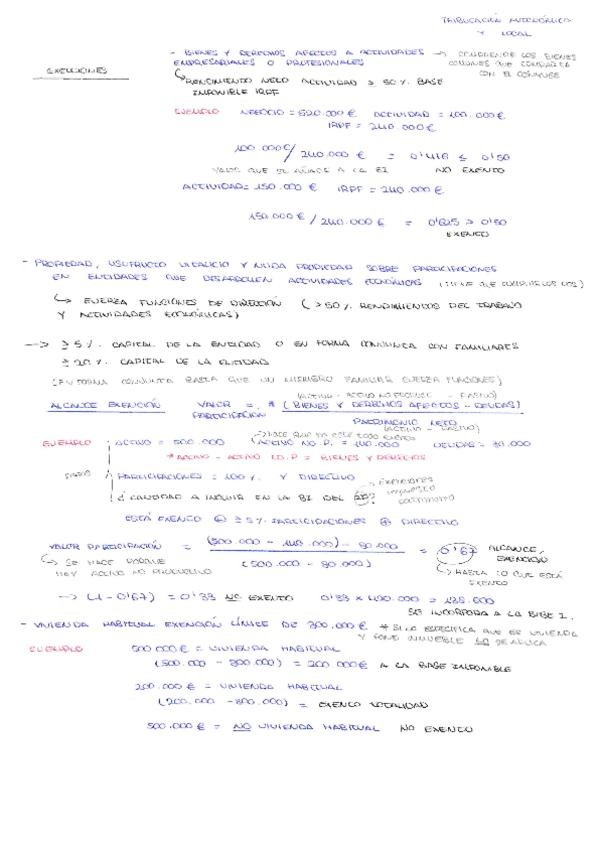 TRIBUTACIÓN AUTONÓMICA
Y LOCAL
EXENCIONES
- BIENES Y DERECHOS AFECTOS A ACTIVIDADES → COMPRENDE LOS BIENES
EMPRESARIALES O PROFESIONALES COMUNES QUE COMPARTA
CON EL CÓNYUGE
RENDIMIENTO NETO ACTIVIDAD ≥ 50 % BASE
IMPONIBLE IRPF
EJEMPLO NEGOCIO = 520.000 € ACTIVIDAD = 100.000 €
IRPF = 240.000 €
100.000 € / 240.000 € = 0'416 ≤ 0'50
VALOR QUE SE AÑADE A LA BI NO EXENTO
ACTIVIDAD = 150.000 € IRPF = 240.000 €
150.000 € / 240.000 € = 0'625 > 0'50
EXENTO
- PROPIEDAD, USUFRUCTO VITALICIO Y NUDA PROPIEDAD SOBRE PARTICIPACIONES
EN ENTIDADES QUE DESARROLLEN ACTIVIDADES ECONÓMICAS (TIENE QUE CUMPLIR LOS DOS)
↳ EJERZA FUNCIONES DE DIRECCIÓN (> 50 % RENDIMIENTOS DEL TRABAJO
Y ACTIVIDADES ECONÓMICAS)
→ ≥ 5 % CAPITAL DE LA ENTIDAD O EN FORMA CONJUNTA CON FAMILIARES
≥ 20 % CAPITAL DE LA ENTIDAD
(EN FORMA CONJUNTA BASTA QUE UN MIEMBRO FAMILIAR EJERZA FUNCIONES)
(ACTIVO - ACTIVO NO PRODUC - PASIVO)
ALCANCE EXENCIÓN VALOR = * (BIENES Y DERECHOS AFECTOS - DEUDAS)
PARTICIPACIÓN PATRIMONIO NETO
(ACTIVO - PASIVO)
EJEMPLO ACTIVO = 500.000 ACTIVO NO. P. = 140.000 DEUDAS = 80.000
* ACTIVO - ACTIVO NO. P = BIENES Y DERECHOS
DATOS PARTICIPACIONES = 100 % Y DIRECTIVO
EXENCIONES
IMPUESTO
PATRIMONIO
¿ CANTIDAD A INCLUIR EN LA BI DEL ?
ESTÁ EXENTO ⊕ ≥ 5 % PARTICIPACIONES ⊕ DIRECTIVO
VALOR PARTICIPACIÓN = (500.000 - 140.000) - 80.000 = 0'67 ALCANCE EXENCIÓN
(500.000 - 80.000)
↳ SE HACE PORQUE
HAY ACTIVO NO PRODUCTIVO
↳ HASTA LO QUE ESTÁ
EXENTO
→ (1 - 0'67) = 0'33 NO EXENTO
SE INCORPORA A LA BASE I.
- VIVIENDA HABITUAL EXENCIÓN LÍMITE DE 300.000 € * SI NO ESPECIFICA QUE ES VIVIENDA
Y PONE INMUEBLE NO SE APLICA
EJEMPLO 500.000 € = VIVIENDA HABITUAL
(500.000 - 300.000) = 200.000 € A LA BASE IMPONIBLE
200.000 € = VIVIENDA HABITUAL
(200.000 - 300.000) = EXENTO TOTALIDAD
500.000 € = NO VIVIENDA HABITUAL NO EXENTO